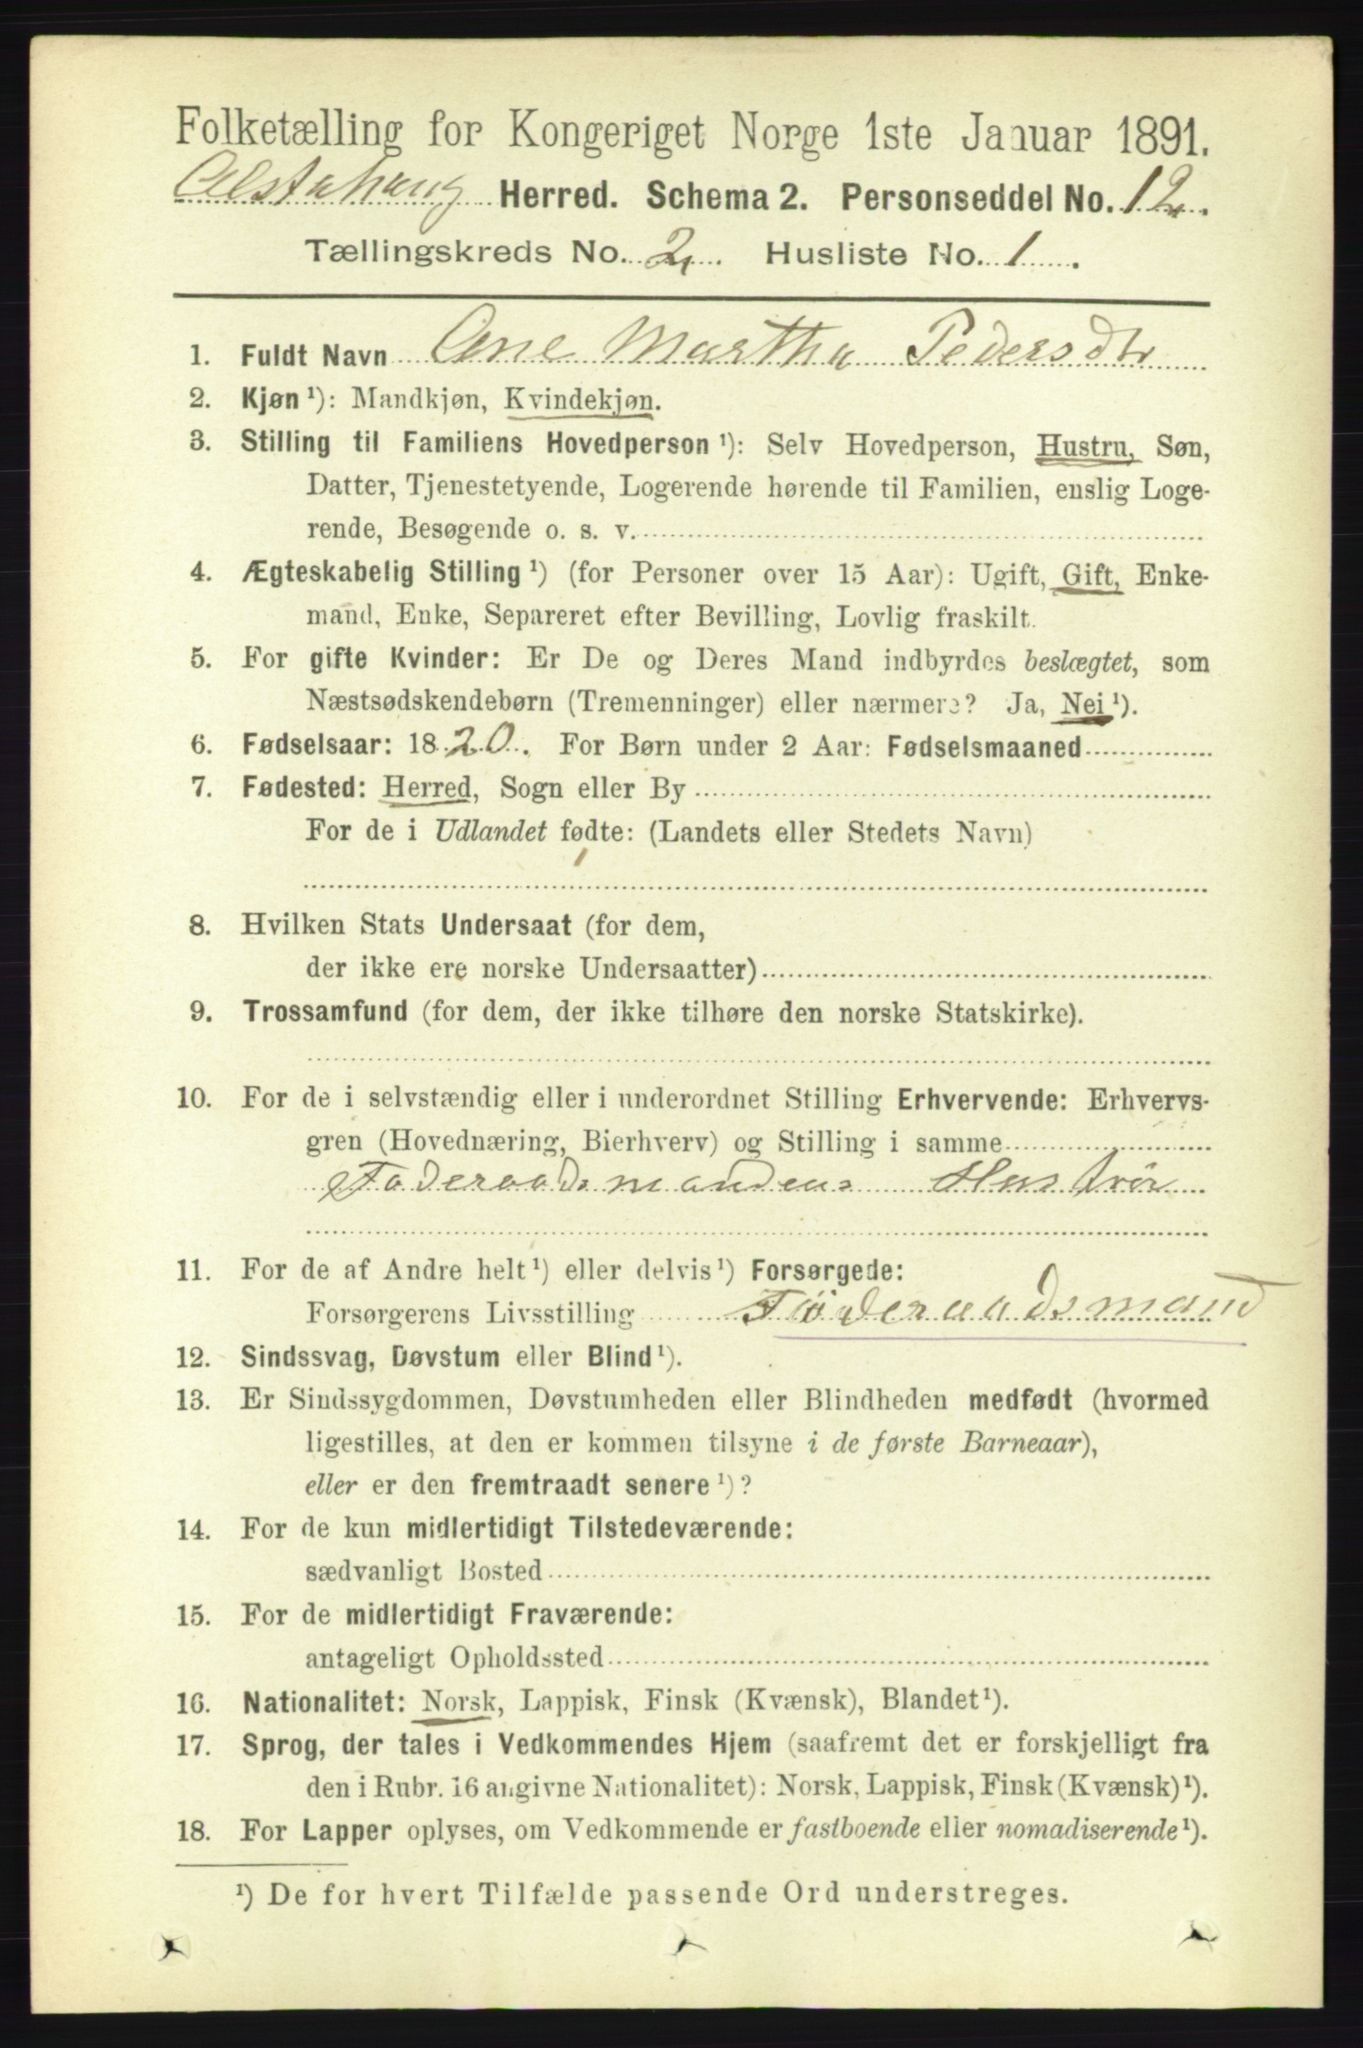 Folketælling for Kongeriget Norge 1ste Januar 1891.
Alstahaug Herred. Schema 2. Personseddel No. 12.
Tællingskreds No. 2. Husliste No. 1.
1. Fuldt Navn Ane Martha Pedersdtr
2. Kjøn ¹): Mandkjøn, Kvindekjøn.
3. Stilling til Familiens Hovedperson ¹): Selv Hovedperson, Hustru, Søn,
Datter, Tjenestetyende, Logerende hørende til Familien, enslig Loge-
rende, Besøgende o. s. v.
4. Ægteskabelig Stilling ¹) (for Personer over 15 Aar): Ugift, Gift, Enke-
mand, Enke, Separeret efter Bevilling, Lovlig fraskilt.
5. For gifte Kvinder: Er De og Deres Mand indbyrdes beslægtet, som
Næstsødskendebørn (Tremenninger) eller nærmere? Ja, Nei ¹).
6. Fødselsaar: 1820. For Børn under 2 Aar: Fødselsmaaned
7. Fødested: Herred, Sogn eller By
For de i Udlandet fødte: (Landets eller Stedets Navn)
8. Hvilken Stats Undersaat (for dem,
der ikke ere norske Undersaatter)
9. Trossamfund (for dem, der ikke tilhøre den norske Statskirke).
10. For de i selvstændig eller i underordnet Stilling Erhvervende: Erhvervs-
gren (Hovednæring, Bierhverv) og Stilling i samme
Foderaadsmandens Hustrør
11. For de af Andre helt ¹) eller delvis ¹) Forsørgede:
Forsørgerens Livsstilling Føderaadsmand
12. Sindssvag, Døvstum eller Blind ¹).
13. Er Sindssygdommen, Døvstumheden eller Blindheden medfødt (hvormed
ligestilles, at den er kommen tilsyne i de første Barneaar),
eller er den fremtraadt senere ¹)?
14. For de kun midlertidigt Tilstedeværende:
sædvanligt Bosted
15. For de midlertidigt Fraværende:
antageligt Opholdssted
16. Nationalitet: Norsk, Lappisk, Finsk (Kvænsk), Blandet ¹).
17. Sprog, der tales i Vedkommendes Hjem (saafremt det er forskjelligt fra
den i Rubr. 16 angivne Nationalitet): Norsk, Lappisk, Finsk (Kvænsk) ¹).
18. For Lapper oplyses, om Vedkommende er fastboende eller nomadiserende ¹).
¹) De for hvert Tilfælde passende Ord understreges.